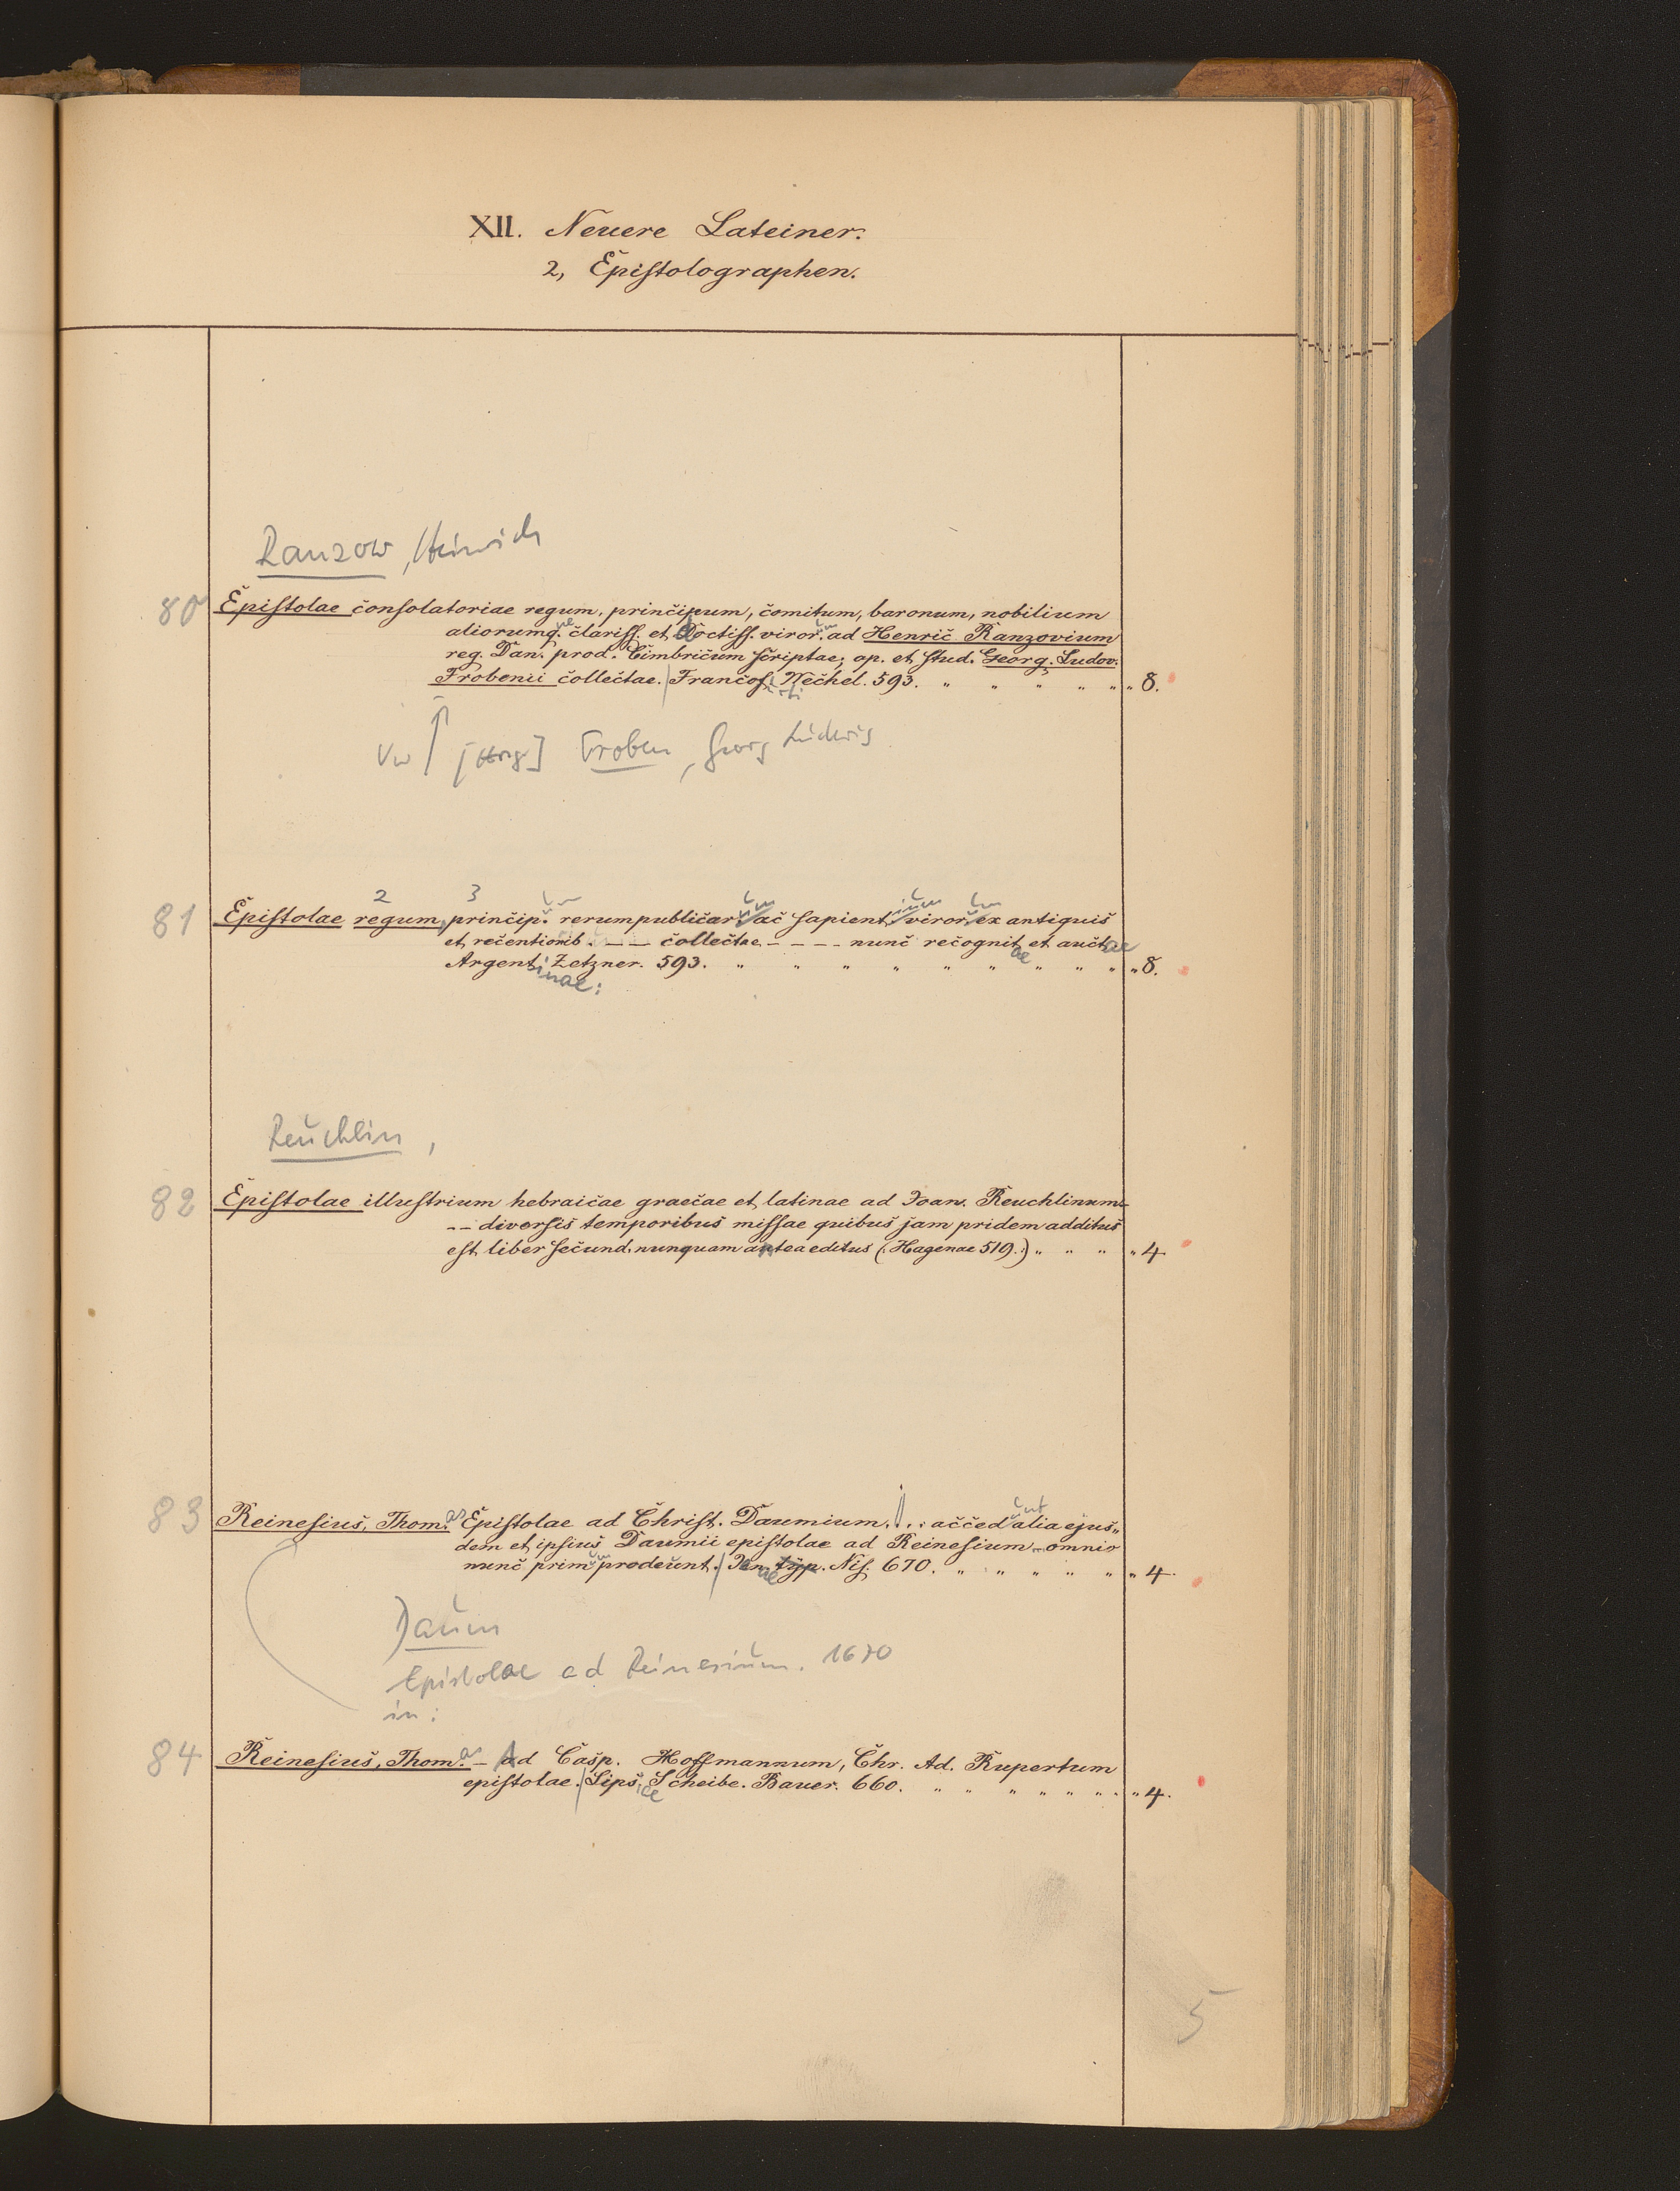 XII. Neuere Lateiner.
2, Epistolographen.
Ranzow, Heinrich
80 Epistolae consolatoriae regum, principum, comitum, baronum, nobilium
aliorumq.ue clariss. et doctiss. viror.um ad Henric Ranzovium
reg. Dan. prod. Cimbricum scriptae; op. et stud. Georg. Ludov.
Frobenii collectae. Francof. Wechel. 593. " " " " " " 8.
Vw [Hrsg] Froben, Georg Ludwig
2 3
81 Epistolae regum, princip.um rerumpublicarum ac sapientium virorum ex antiquis
et recentiorib. - - - collectae - - - - nunc recognitae et auctae
Argentinae: Zetzner. 593. " " " " " " " " " " 8.
Reuchlin,
82 Epistolae illustrium hebraicae graecae et latinae ad Joan. Reuchlinum
- - diversis temporibus missae quibus jam pridem additus
est liber secund. nunquam antea editus (Hagenae 519.) " " " " 4
83 Reinesius, Thomas Epistolae ad Christ. Daumium. . . : accedunt alia ejus„
dem et ipsius Daumii epistolae ad Reinesium - omnia
nunc primum prodeunt. Jenae typ. Nis. 670. " " " " " " 4.
Daum
Epistolae ad Reinesium. 1670
in:
84 Reinesius, Thomas - Ad Casp. Hoffmannum, Chr. Ad. Rupertum
epistolae. Lipsiae Scheibe. Bauer. 660. " " " " " " " " 4.
5